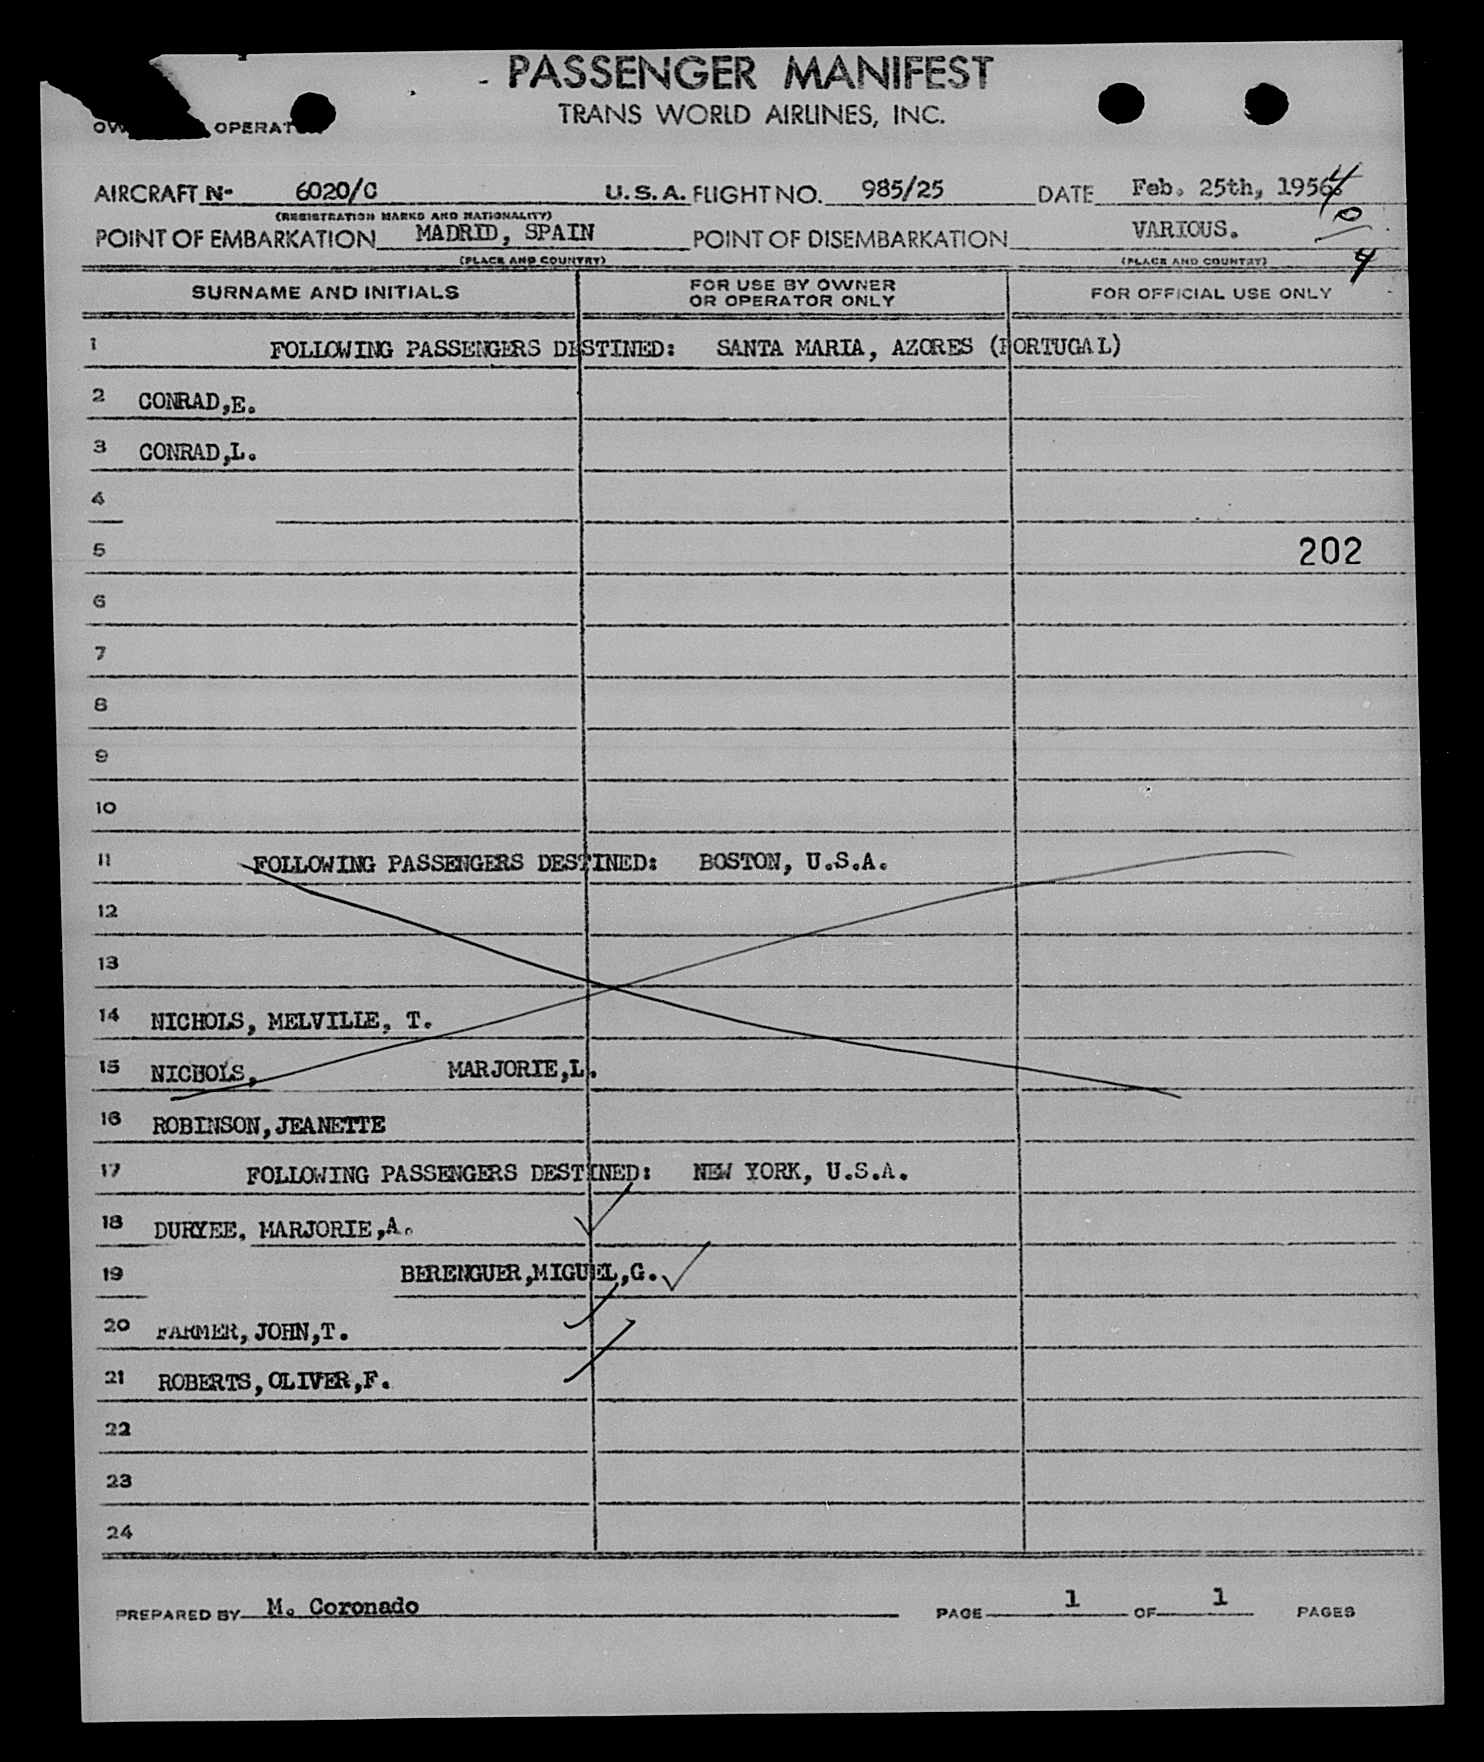 PASSENGER MANIFEST
TRANS WORLD AIRLINES, INC.
AIRCRAFT N- 6020/C U.S.A. FLIGHT NO. 985/25 DATE Feb. 25th, 1956. 4
(REGISTRATION MARKS AND NATIONALITY) 0
POINT OF EMBARKATION MADRID, SPAIN POINT OF DISEMBARKATION VARIOUS.
(PLACE AND COUNTRY) (PLACE AND COUNTRY) 4
SURNAME AND INITIALS FOR USE BY OWNER OR OPERATOR ONLY FOR OFFICIAL USE ONLY
1 FOLLOWING PASSENGERS DESTINED: SANTA MARIA, AZORES (PORTUGAL)
2 CONRAD,E.
3 CONRAD,L.
4
5 202
6
7
8
9
10
11 FOLLOWING PASSENGERS DESTINED: BOSTON, U.S.A.
12
13
14 NICHOLS, MELVILLE, T.
15 NICHOLS, MARJORIE,L.
16 ROBINSON,JEANETTE
17 FOLLOWING PASSENGERS DESTINED: NEW YORK, U.S.A.
18 DURYEE, MARJORIE,A.
19 BERENGUER,MIGUEL,G.
20 FARMER, JOHN,T.
21 ROBERTS,OLIVER,F.
22
23
24
PREPARED BY M. Coronado PAGE 1 OF 1 PAGES